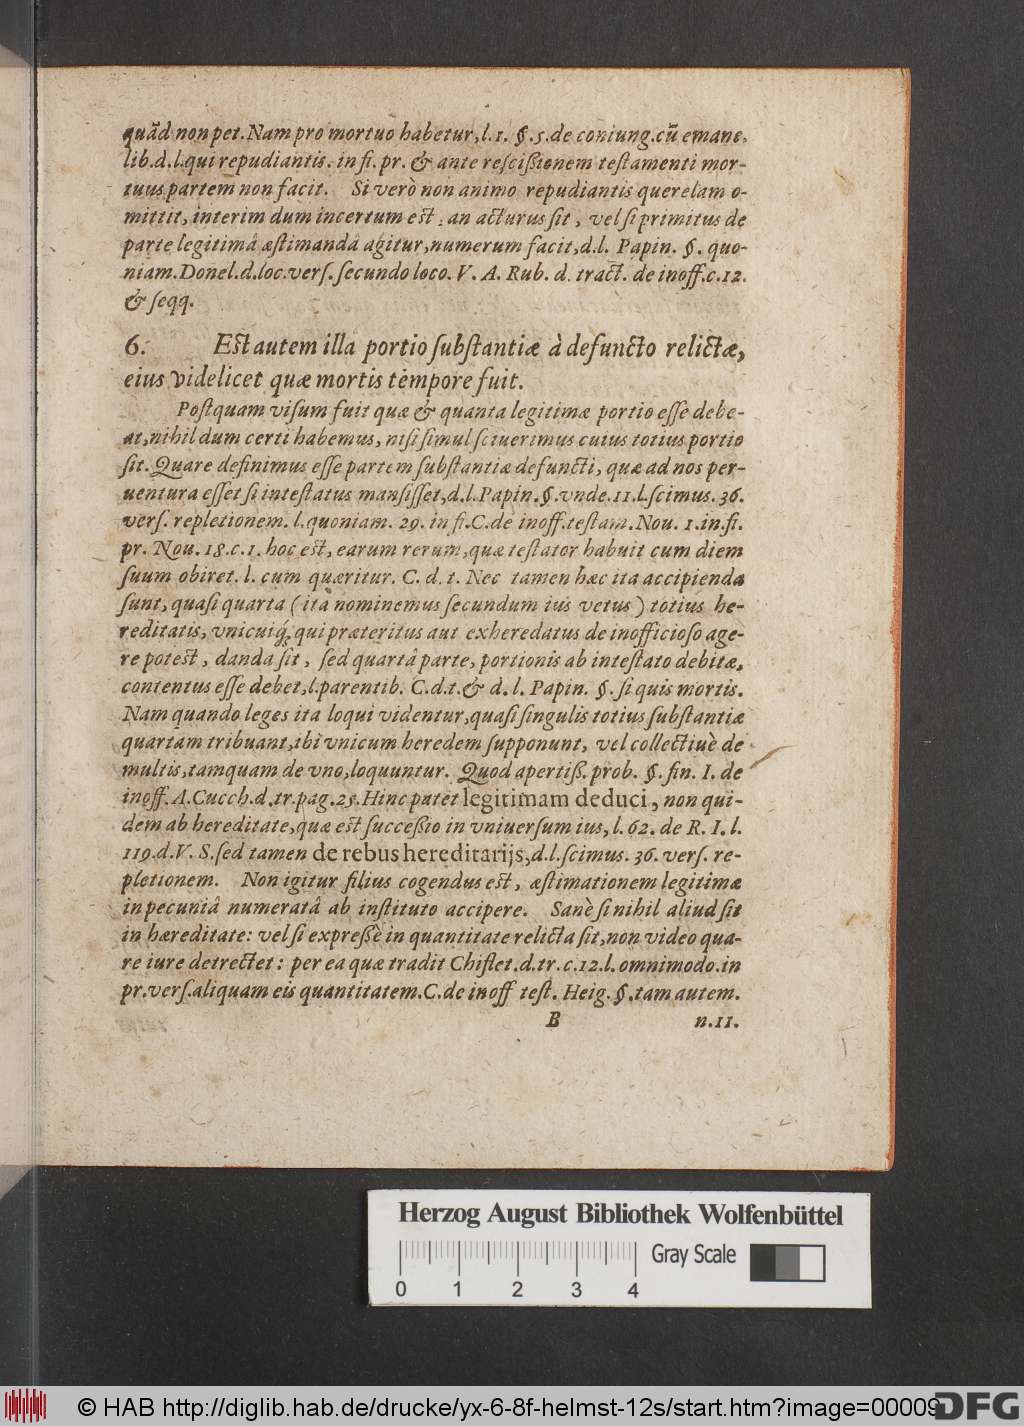 quãd non pet. Nam pro mortuo habetur, l. 1. §. 5. de coniung. cũ emanc.
lib. d. l. qui repudiantis. in fi. pr. & ante resciſsionem teſtamenti mor-
tuus partem non facit. Si verò non animo repudiantis querelam o-
mittit, interim dum incertum eſt: an acturus ſit, vel ſi primitus de
parte legitimâ æſtimandâ agitur, numerum facit, d. l. Papin. §. quo-
niam. Donel. d. loc. verſ. ſecundo loco. V. A. Rub. d. tract. de inoff. c. 12.
& ſeqq.
6. Eſt autem illa portio ſubſtantiæ à defuncto relictæ,
eius videlicet quæ mortis tempore fuit.
Poſtquam viſum fuit quæ & quanta legitimæ portio eſſe debe-
at, nihil dum certi habemus, niſi ſimul ſciuerimus cuius totius portio
ſit. Quare definimus eſſe partem ſubſtantiæ defuncti, quæ ad nos per-
uentura eſſet ſi inteſtatus manſiſſet, d. l. Papin. §. vnde. 11. l. ſcimus. 36.
verſ. repletionem. l. quoniam. 29. in fi. C. de inoff. teſtam. Nou. 1. in. fi.
pr. Nou. 18. c. 1. hoc eſt, earum rerum, quæ teſtator habuit cum diem
ſuum obiret. l. cum quæritur. C. d. t. Nec tamen hæc ita accipienda
ſunt, quaſi quarta (ita nominemus ſecundum ius vetus) totius he-
reditatis, vnicuiq́; qui præteritus aut exheredatus de inofficioſo age-
re poteſt, danda ſit, ſed quartâ parte, portionis ab inteſtato debitæ,
contentus eſſe debet, l. parentib. C. d. t. & d. l. Papin. §. ſi quis mortis.
Nam quando leges ita loqui videntur, quaſi ſingulis totius ſubſtantiæ
quartam tribuant, ibi vnicum heredem ſupponunt, vel collectiuè de
multis, tamquam de vno, loquuntur. Quod apertiß. prob. §. fin. I. de
inoff. A. Cucch. d. tr. pag. 25. Hinc patet legitimam deduci, non qui-
dem ab hereditate, quæ eſt ſucceßio in vniuerſum ius, l. 62. de R. I. l.
119. d. V. S. ſed tamen de rebus hereditarijs, d. l. ſcimus. 36. verſ. re-
pletionem. Non igitur filius cogendus eſt, æſtimationem legitimæ
in pecuniâ numeratâ ab inſtituto accipere. Sanè ſi nihil aliud ſit
in hæreditate: vel ſi expreßè in quantitate relicta ſit, non video qua-
re iure detrectet: per ea quæ tradit Chiflet. d. tr. c. 12. l. omnimodo. in
pr. verſ. aliquam eis quantitatem. C. de inoff teſt. Heig. §. tam autem.
B n. 11.
Herzog August Bibliothek Wolfenbüttel
Gray Scale
0 1 2 3 4
© HAB http://diglib.hab.de/drucke/yx-6-8f-helmst-12s/start.htm?image=00009
DFG